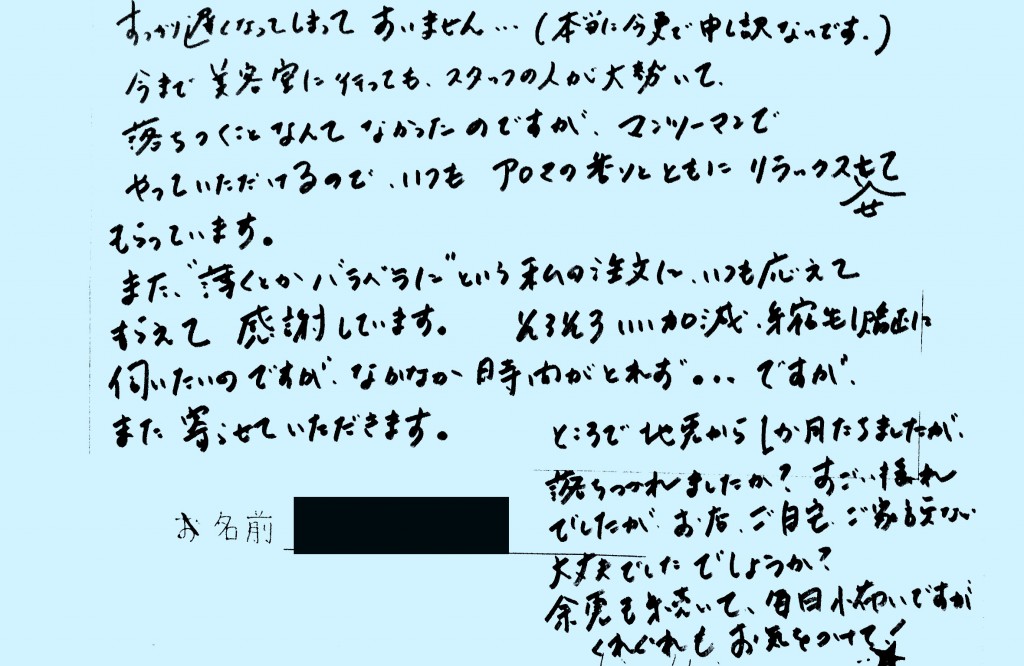 すっかり遅くなってしまって すいません…(本当に今更で申し訳ないです。)
今まで美容室に行っても、スタッフの人が大勢いて、
落ちつくことなんて なかったのですが、マンツーマンで
やっていただけるので、いつも アロマの香りとともに リラックスせて
せ
もらっています。
また、“薄くとか バラバラに”という 私の注文に、いつも応えて
もらえて 感謝しています。 そろそろ いい加減、矯正に
伺いたいのですが、なかなか 時間がとれず。・・・ ですが、
また 寄らせていただきます。
ところで 地震から 1か月たちましたが、
落ちつかれましたか? すごい揺れ
でしたが お店、ご自宅、ご家族
大丈夫でした でしょうか?
余震も続いて、毎日 怖いですが
くれぐれも お気をつけて!
お名前